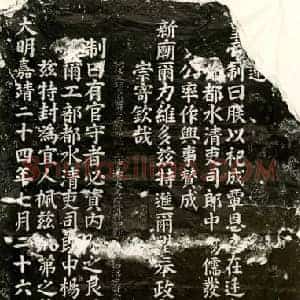 制曰朕以祀成覃恩在廷
都水清吏司郎中儒
公率作興事贊成
新廟爾力維多茲特進爾奉政
崇寄欽哉
制曰有官守者必資內之良
爾工部都水清吏司郎中楊
茲特封為宜人佩茲弟之
大明嘉靖二十四年七月二十六